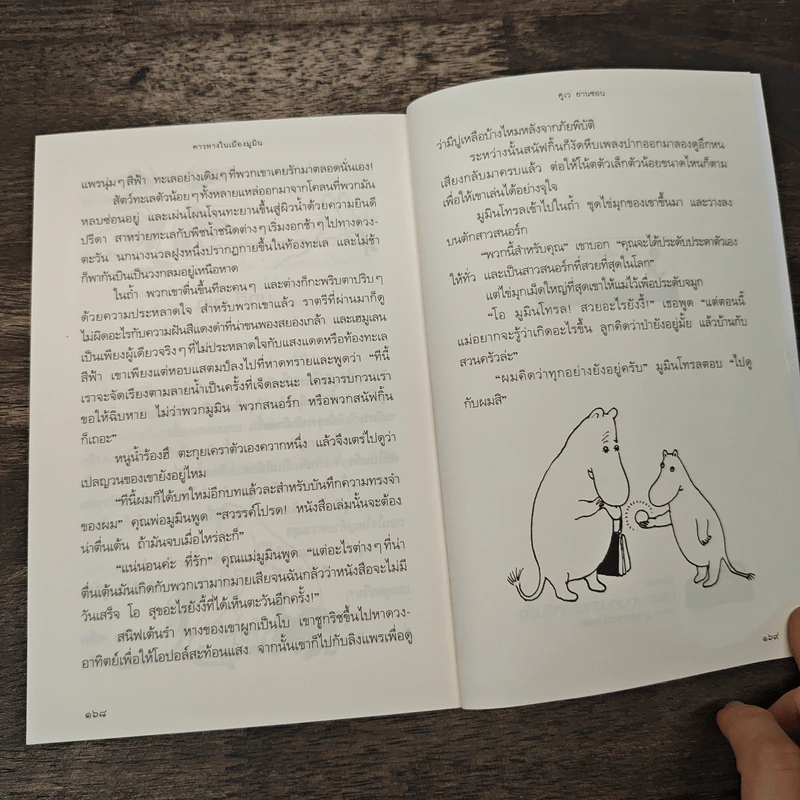 ดาวหางในเมืองมูมิน
แพรนุ่มๆ สีฟ้า ทะเลอย่างเดิมๆ ที่พวกเขาเคยรักมาตลอดนั่นเอง!
สัตว์ทะเลตัวน้อยๆ ทั้งหลายแหล่ออกมาจากโคลนที่พวกมัน
หลบซ่อนอยู่ และเผ่นโผนโจนทะยานขึ้นสู่ผิวน้ำด้วยความยินดี
ปรีดา สาหร่ายทะเลกับพืชน้ำชนิดต่างๆ เริ่มงอกช้าๆ ไปทางดวง-
ตะวัน นกนางนวลฝูงหนึ่งปรากฏกายขึ้นในท้องทะเล และไม่ช้า
ก็พากันบินเป็นวงกลมอยู่เหนือหาด
ในถ้ำ พวกเขาตื่นขึ้นทีละคนๆ และต่างก็กะพริบตาปริบๆ
ด้วยความประหลาดใจ สำหรับพวกเขาแล้ว ราตรีที่ผ่านมาก็ดู
ไม่ผิดอะไรกับความฝันสีแดงดำที่น่าขนพองสยองเกล้า และเฮมูเลน
เป็นเพียงผู้เดียวจริงๆ ที่ไม่ประหลาดใจกับแสงแดดหรือท้องทะเล
สีฟ้า เขาเพียงแต่หอบแสตมป์ลงไปที่หาดทรายและพูดว่า “ทีนี้
เราจะจัดเรียงตามลายน้ำเป็นครั้งที่เจ็ดละนะ ใครมารบกวนเรา
ขอให้ฉิบหาย ไม่ว่าพวกมูมิน พวกสนอร์ก หรือพวกสนัฟกิ้น
ก็เถอะ”
หนูน้ำร้องฮึ ตะกุยเคราตัวเองควากหนึ่ง แล้วจึงเตร่ไปดูว่า
เปลญวนของเขายังอยู่ไหม
“ทีนี้ผมก็ได้บทใหม่อีกบทแล้วละสำหรับบันทึกความทรงจำ
ของผม” คุณพ่อมูมินพูด “สวรรค์โปรด! หนังสือเล่มนั้นจะต้อง
น่าตื่นเต้น ถ้ามันจบเมื่อไหร่ละก็”
“แน่นอนค่ะ ที่รัก” คุณแม่มูมินพูด “แต่อะไรต่างๆ ที่น่า
ตื่นเต้นมันเกิดกับพวกเรามากมายเสียจนฉันกลัวว่าหนังสือจะไม่มี
วันเสร็จ โอ สุขอะไรยังงี้ที่ได้เห็นตะวันอีกครั้ง!”
สนิฟเต้นรำ หางของเขาผูกเป็นโบ เขาชูกริชขึ้นไปหาดวง-
อาทิตย์เพื่อให้โอปอล์สะท้อนแสง จากนั้นเขาก็ไปกับลิงแพรเพื่อดู
๑๖๘
ตูเว ยานซอน
ว่ามีปูเหลือบ้างไหมหลังจากภัยพิบัติ
ระหว่างนั้นสนัฟกิ้นก็งัดหีบเพลงปากออกมาลองดูอีกหน
เสียงกลับมาครบแล้ว ต่อให้โน้ตตัวเล็กตัวน้อยขนาดไหนก็ตาม
เพื่อให้เขาเล่นได้อย่างจุใจ
มูมินโทรลเข้าไปในถ้ำ ขุดไข่มุกของเขาขึ้นมา และวางลง
บนตักสาวสนอร์ก
“พวกนี้สำหรับคุณ” เขาบอก “คุณจะได้ประดับประดาตัวเอง
ให้ทั่ว และเป็นสาวสนอร์กที่สวยที่สุดในโลก”
แต่ไข่มุกเม็ดใหญ่ที่สุดเขาให้แม่ไว้เพื่อประดับจมูก
“โอ มูมินโทรล! สวยอะไรยังงี้!” เธอพูด “แต่ตอนนี้
แม่อยากจะรู้ว่าเกิดอะไรขึ้น ลูกคิดว่าป่ายังอยู่มั้ย แล้วบ้านกับ
สวนครัวล่ะ”
“ผมคิดว่าทุกอย่างยังอยู่ครับ” มูมินโทรลตอบ “ไปดู
กับผมสิ”
๑๖๙